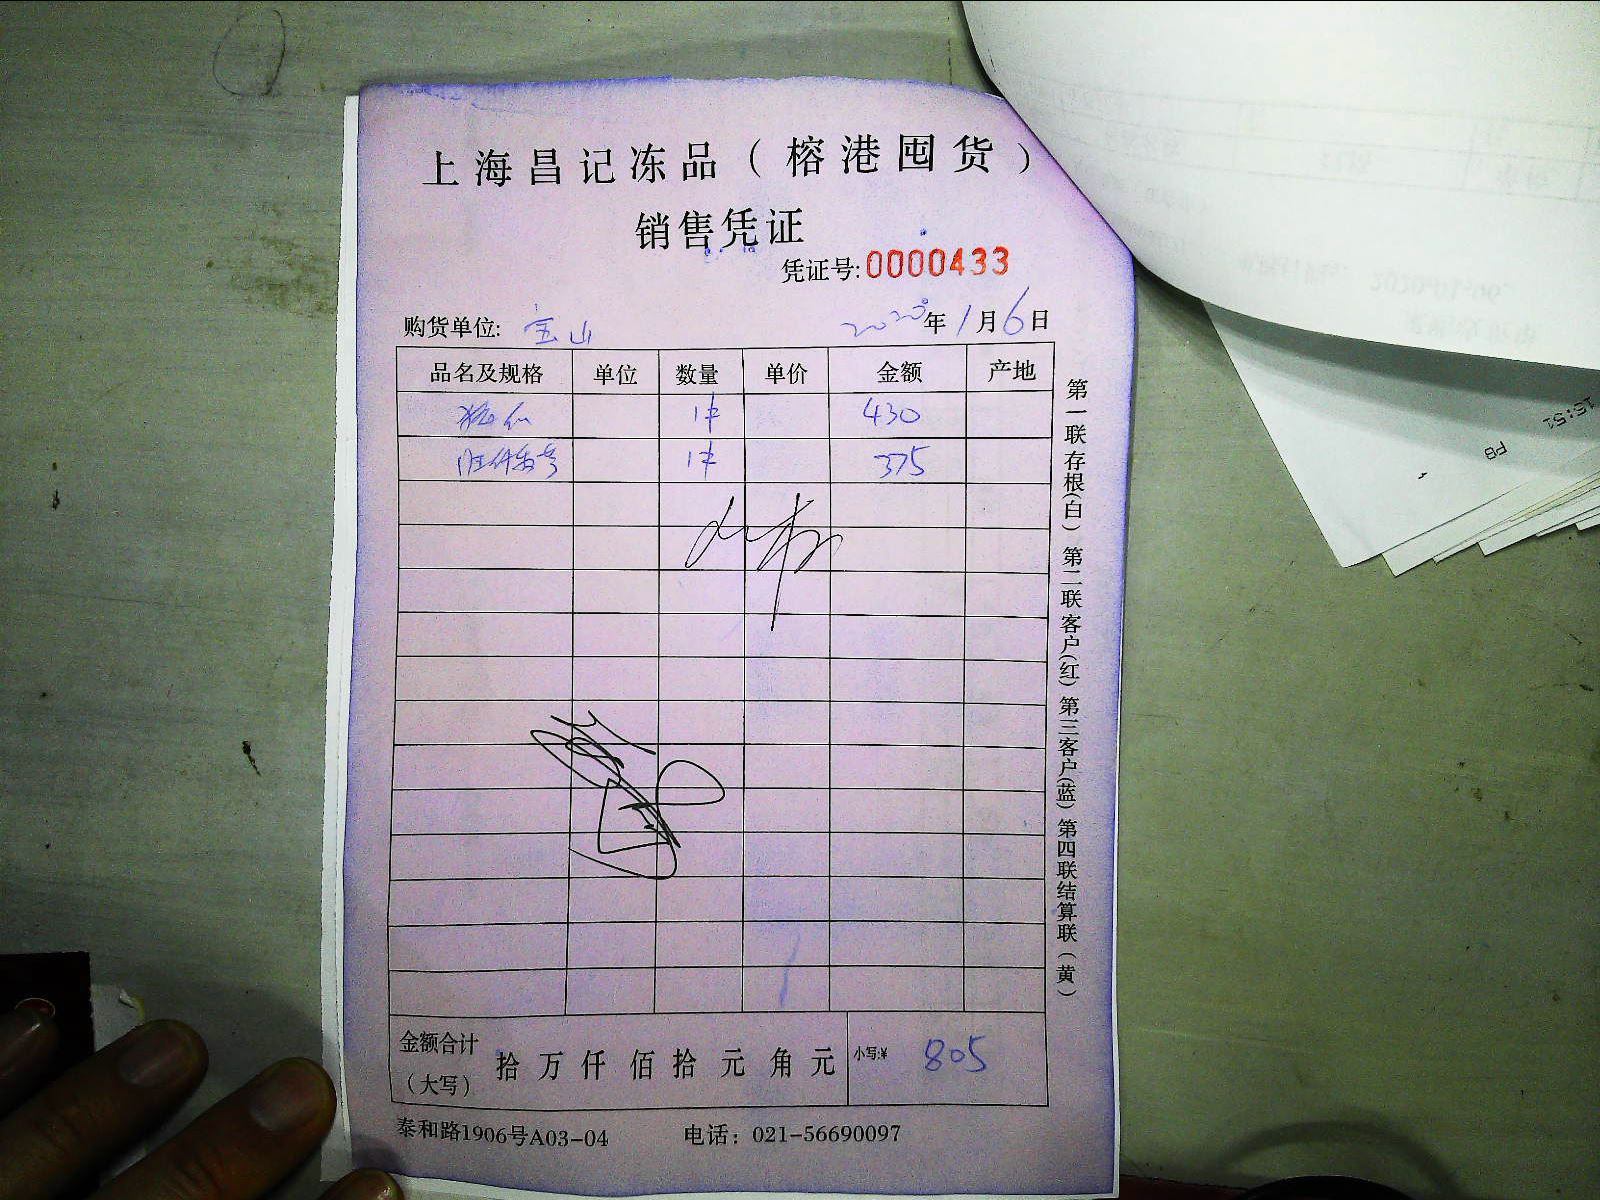 上海昌记冻品（榕港囤货）
销售凭证
凭证号:0000433
购货单位: 宝山 2020年1月6日
品名及规格 单位 数量 单价 金额 产地
1件 430
1件 375
金额合计（大写） 拾 万 仟 佰 拾 元 角 元 小写:¥ 805
泰和路1906号A03-04 电话：021-56690097
第一联存根(白) 第二联客户(红) 第三客户(蓝) 第四联结算联(黄)
15:51